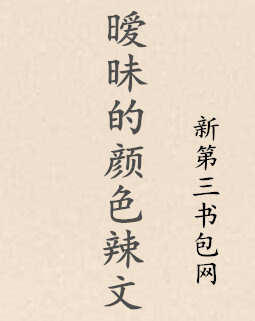 暧昧的颜色辣文
新第三书包网